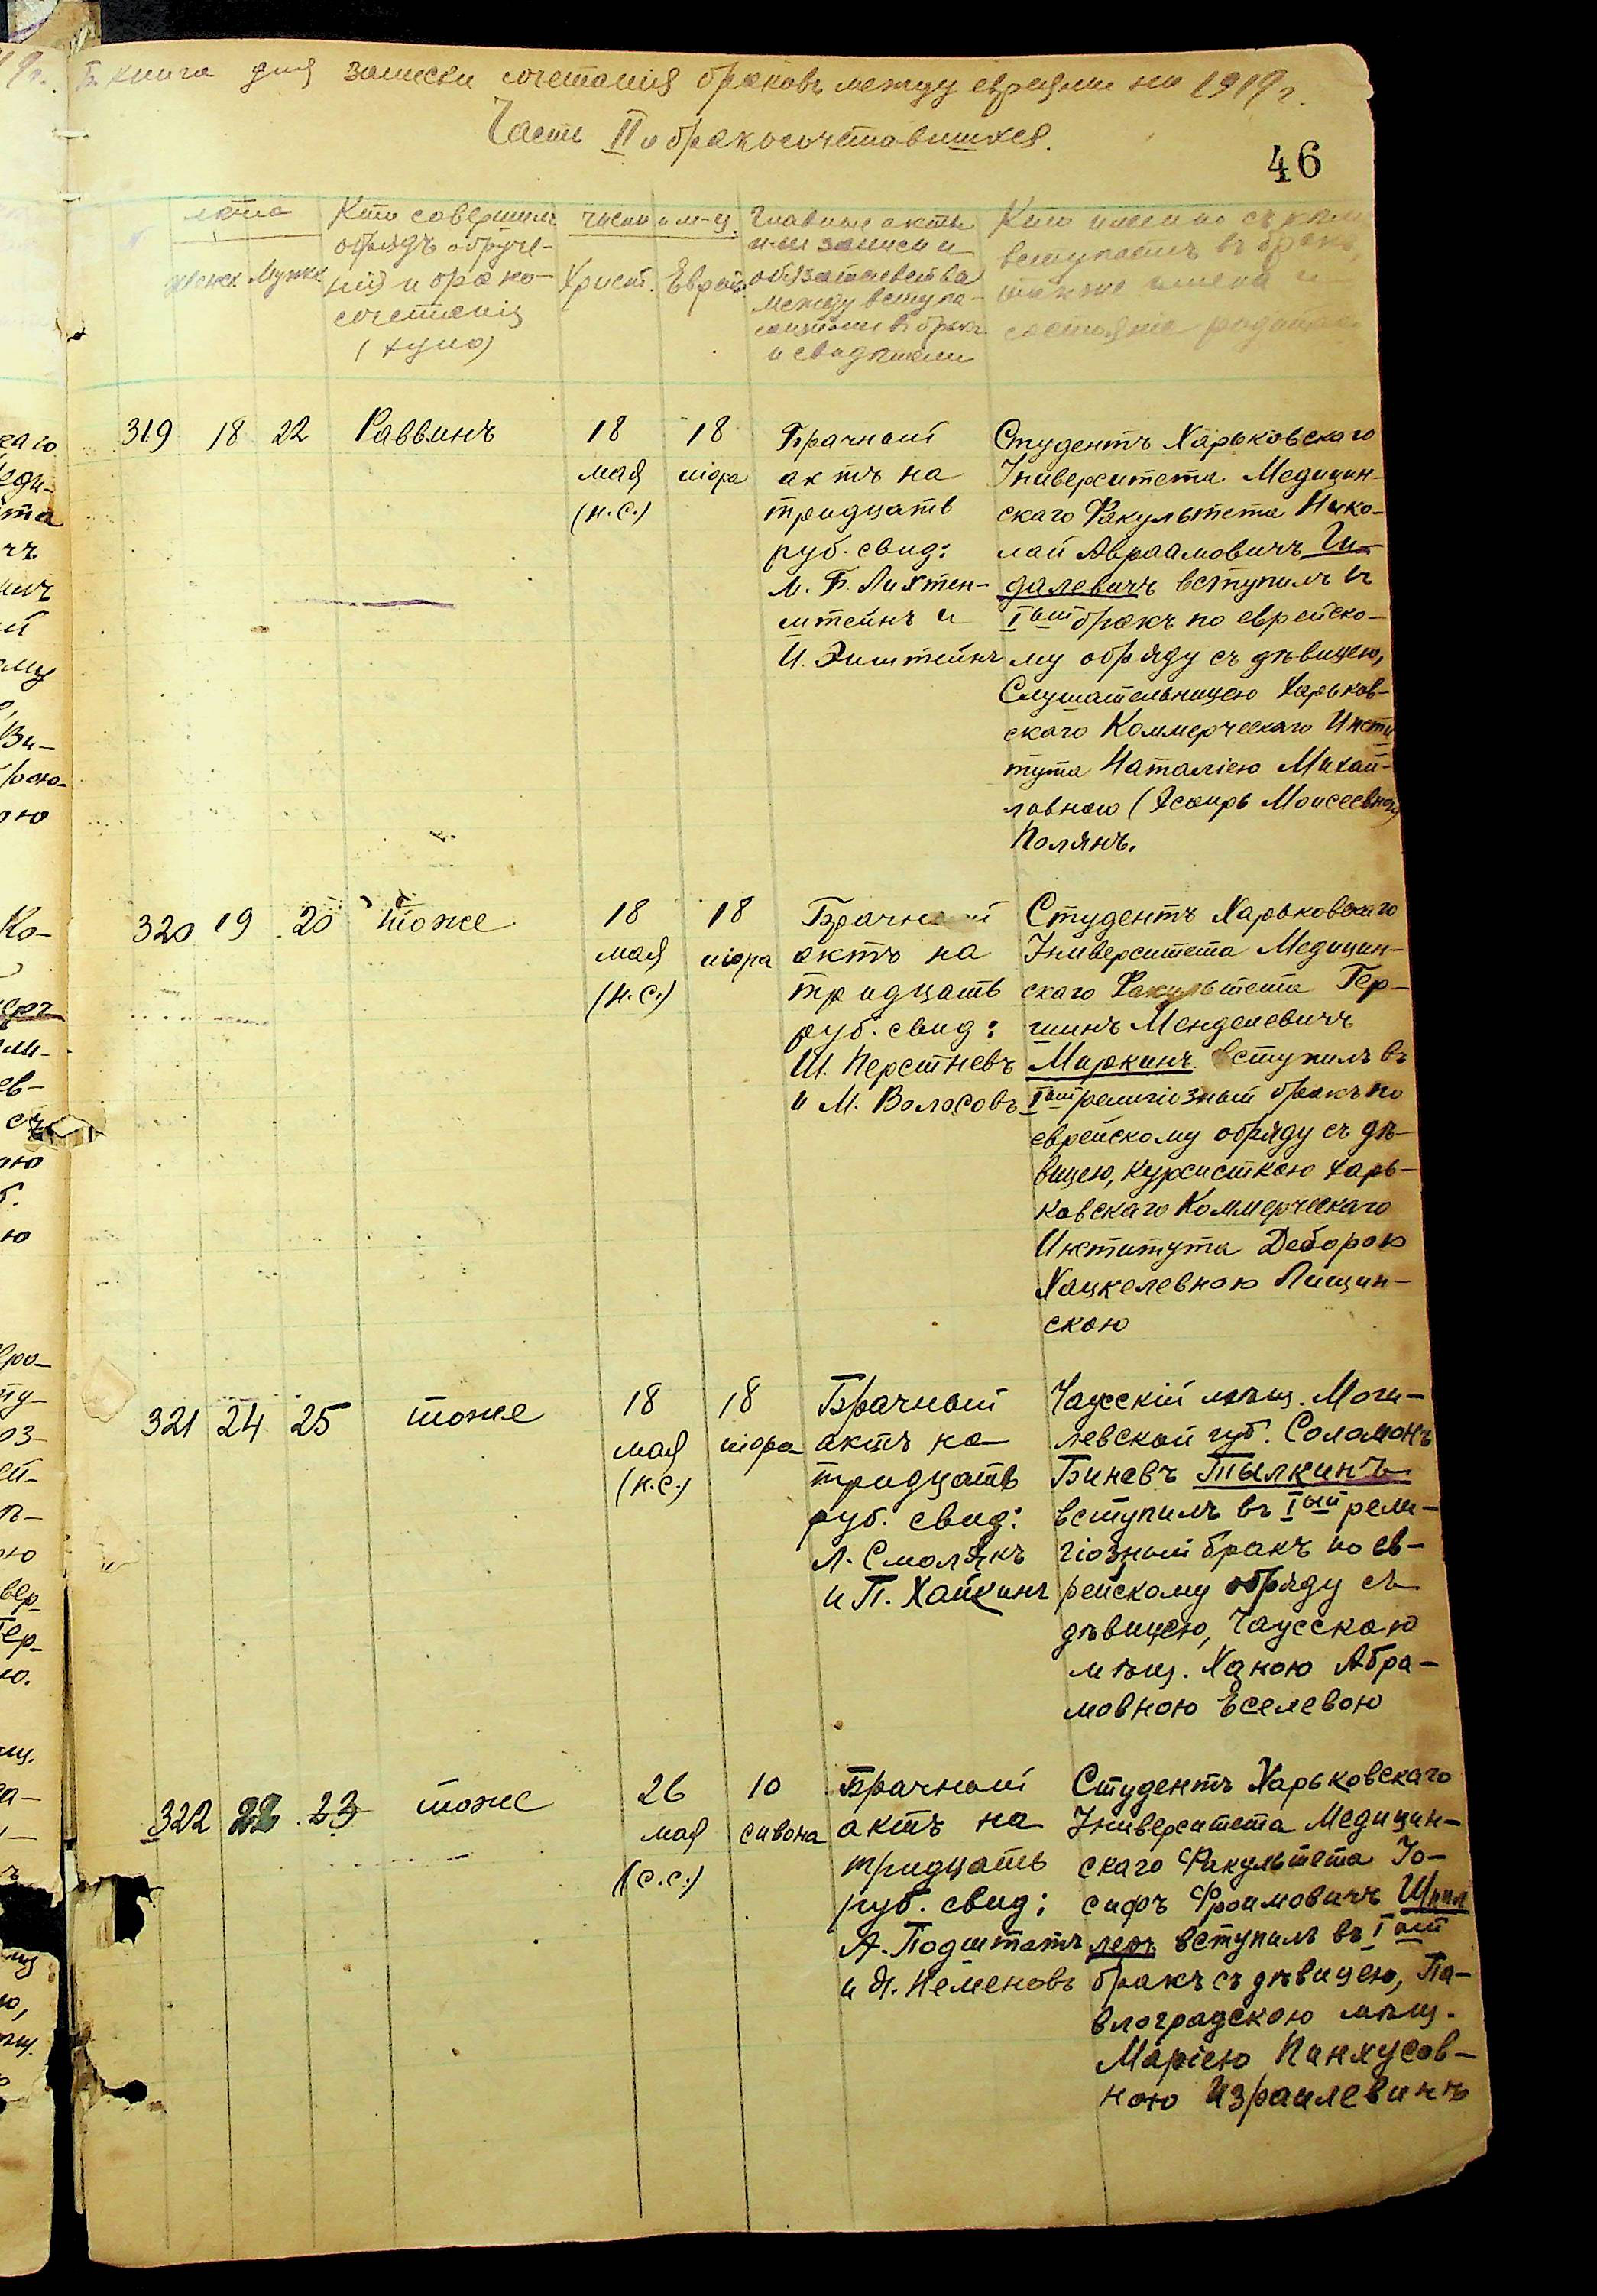 Б. книга для записки сочетанія браковъ между евреями на 1919 г.
Часть II о бракосочетавшихся.
46
лѣта
Женск. Мужск.
Кто совершилъ
обрядъ обруче-
нія и брако-
сочетанія
(хупо)
число и м-ц.
Христ. Еврейс.
Главные акты
или записи и
обязательства
между вступа-
ющими въ бракъ
и свидѣтели
Кто именно съ кѣмъ
вступаетъ въ бракъ,
также имена и
состояніе родител.
319 18 22 Раввинъ
18
мая
(н.с.)
18
Іюра
Брачный
актъ на
тридцать
руб. свид:
М. Б. Лихтен-
штейнъ и
И. Эпштейнъ
Студентъ Харьковскаго
Университета Медицин-
скаго Факультета Нико-
лай Авраамовичъ Ги-
далевичъ вступилъ въ
Iый бракъ по еврейско-
му обряду съ дѣвицею,
Слушательницею Харьков-
скаго Коммерческаго Инсти
тута Наталіею Михай-
ловною (Эсфирь Моисеевною)
Полянъ.
320 19 20 тоже
18
мая
(н.с.)
18
Іюра
Брачный
актъ на
тридцать
руб. свид:
Ш. Перстневъ
и М. Волосовъ
Студентъ Харьковскаго
Университета Медицин-
скаго Факультета Гер-
шинъ Менделевичъ
Миркинъ вступилъ въ
Iый религіозный бракъ по
еврейскому обряду съ дѣ-
вицею, курсисткою Харь-
ковскаго Коммерческаго
Института Деборою
Хацкелевною Лищин-
скою
321 24 25 тоже
18
мая
(н.с.)
18
Іюра
Брачный
актъ на
тридцать
руб. свид:
Л. Смолякъ
и П. Хайкинъ
Чаусскій мѣщ. Моги-
левской губ. Соломонъ
Биневъ Тылкинъ
вступилъ въ Iый рели-
гіозный бракъ по ев-
рейскому обряду съ
дѣвицею, Чаусскою
мѣщ. Ханою Абра-
мовною Еселевою
322 22 23 тоже
26
мая
(с.с.)
10
сивона
Брачный
актъ на
тридцать
руб. свид:
А. Подштатъ
и Я. Неменовъ
Студентъ Харьковскаго
Университета Медицин-
скаго Факультета Іо-
сифъ Фроимовичъ Шпил
леръ вступилъ въ Iый
бракъ съ дѣвицею, Па-
влоградскою мѣщ.
Маріею Пинхусов-
ною Израилевичъ